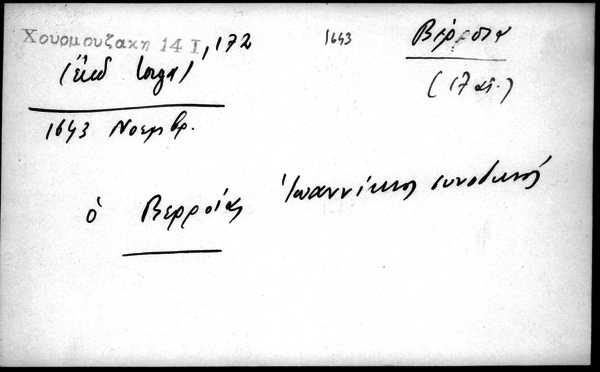 Χουρμουζακη 14 I, 172
1643
Βέρροια
(ἔκδ Iorga)
(17 αἰ.)
1643 Νοεμβρ.
ὁ Βερροίας Ἰωαννίκιος συνοδικός